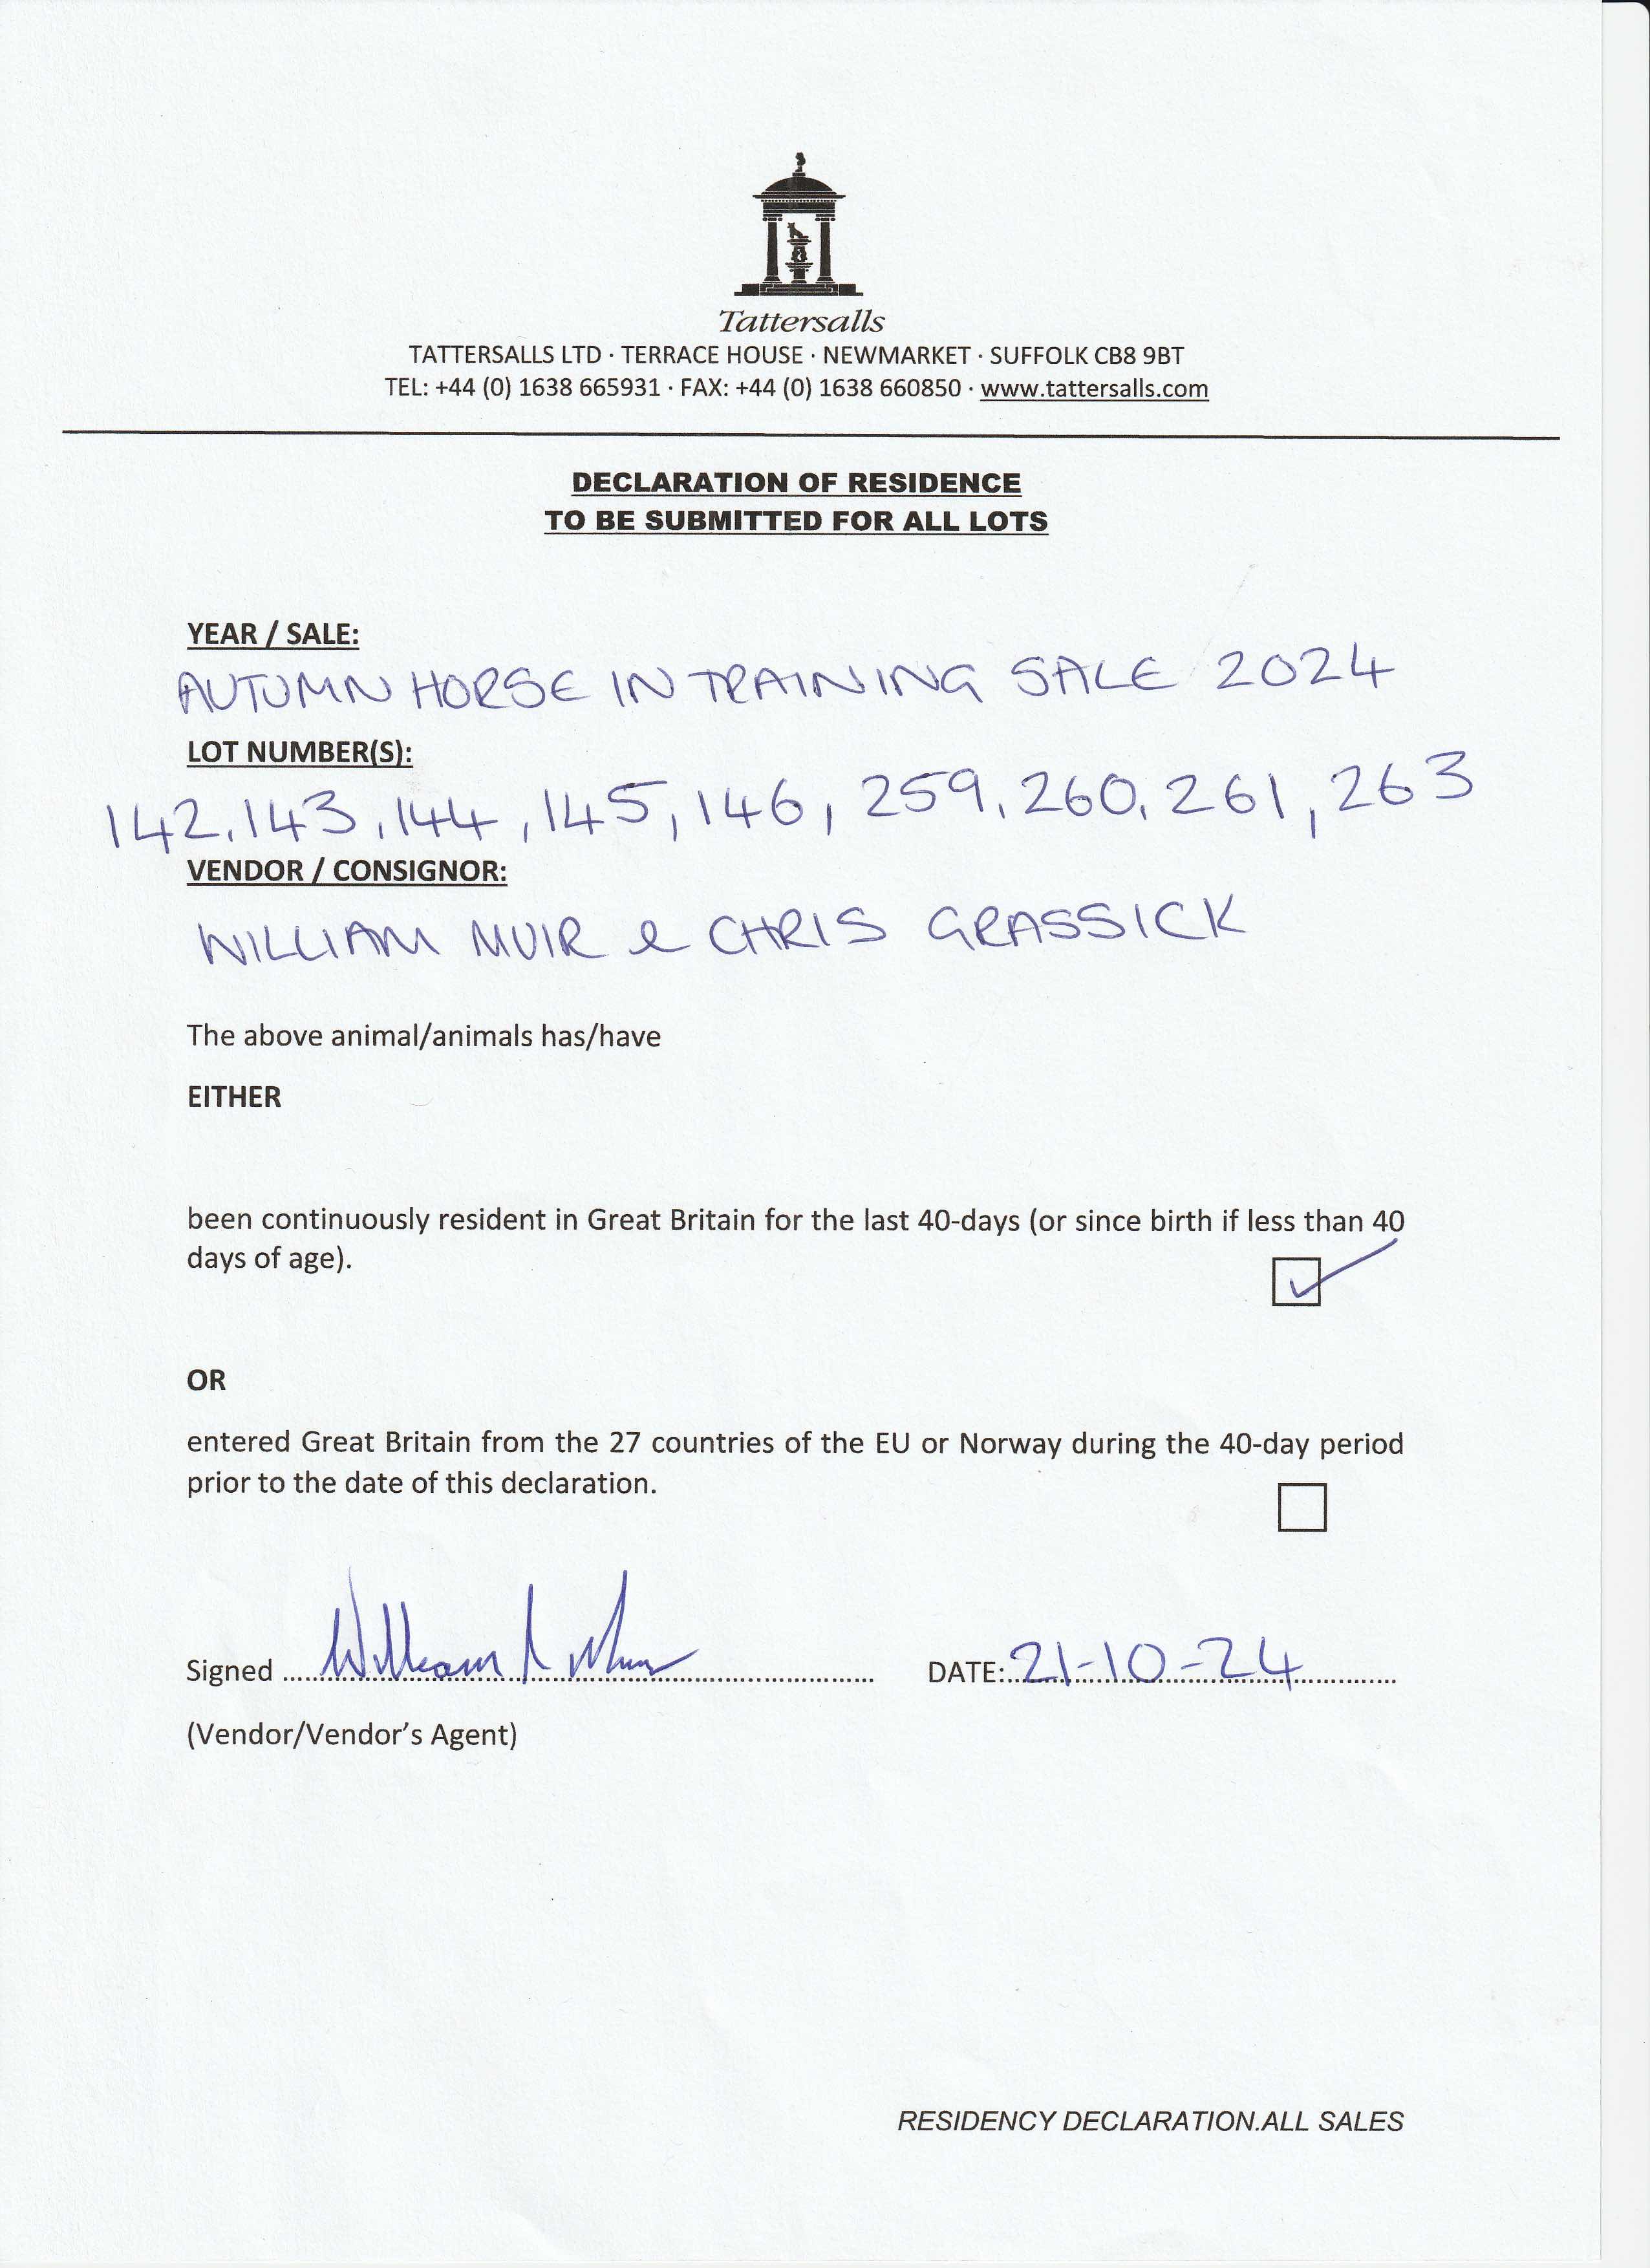 Tattersalls
TATTERSALLS LTD · TERRACE HOUSE · NEWMARKET · SUFFOLK CB8 9BT
TEL: +44 (0) 1638 665931 · FAX: +44 (0) 1638 660850 · www.tattersalls.com
DECLARATION OF RESIDENCE
TO BE SUBMITTED FOR ALL LOTS
YEAR / SALE:
AUTUMN HORSE IN TRAINING SALE 2024
LOT NUMBER(S):
142, 143, 144, 145, 146, 259, 260, 261, 263
VENDOR / CONSIGNOR:
WILLIAM MUIR & CHRIS GRASSICK
The above animal/animals has/have
EITHER
been continuously resident in Great Britain for the last 40-days (or since birth if less than 40
days of age).
OR
entered Great Britain from the 27 countries of the EU or Norway during the 40-day period
prior to the date of this declaration.
Signed William Muir DATE: 21-10-24
(Vendor/Vendor's Agent)
RESIDENCY DECLARATION.ALL SALES